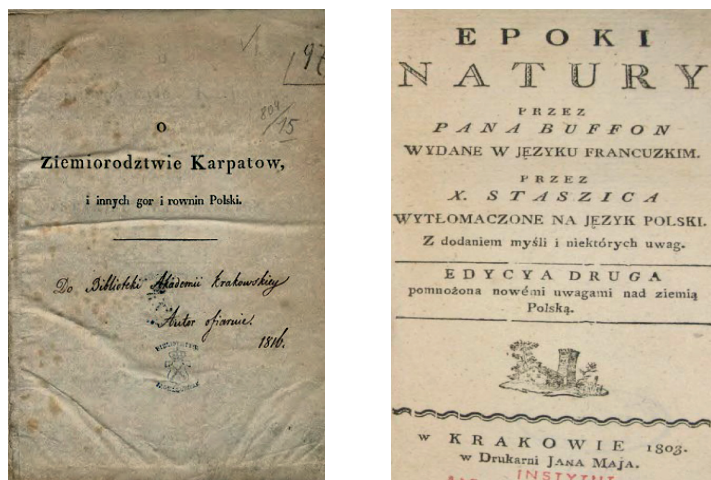 97
809/15
O
Ziemiorodztwie Karpatow,
i innych gor i rownin Polski.
Do Biblioteki Akademii Krakowskiey
Autor ofiaruie.
1816.
EPOKI
NATURY
PRZEZ
PANA BUFFON
WYDANE W JĘZYKU FRANCUZKIM.
PRZEZ
X. STASZICA
WYTŁOMACZONE NA JĘZYK POLSKI.
Z dodaniem myśli i niektórych uwag.
EDYCYA DRUGA
pomnożona nowémi uwagami nad ziemią
Polską.
w KRAKOWIE 1803.
w Drukarni JANA MAJA.
INSTYTUT